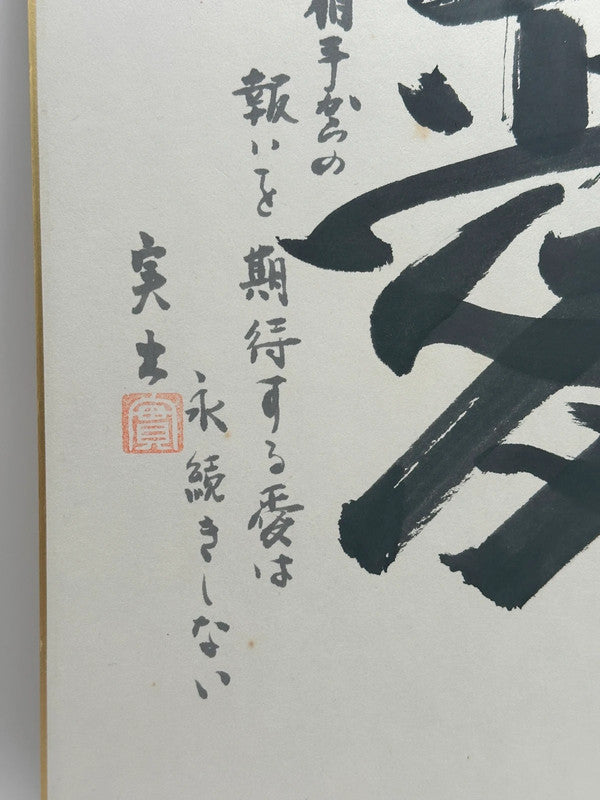 相手からの
報いを期待する愛は
永続きしない
実
實